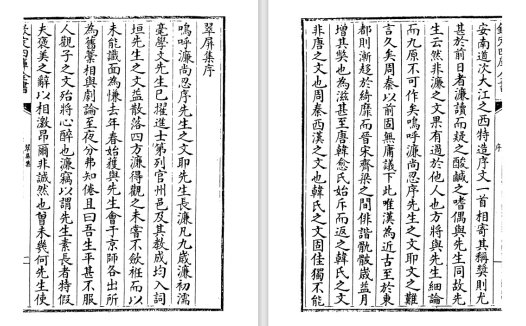 翠屏集序
嗚呼濂尚忍序先生之文耶先生長濂凡九歲濂初濡
毫學文先生已擢進士第列官州邑及其教成均入詞
垣先生之文益散落四方濂得觀之未嘗不斂衽而以
未能識面為慊去年春始獲與先生會于京師各出所
為舊藁相與劇論至夜分弗知倦且曰吾生平甚不服
人觀子之文殆將心醉也濂竊以謂先生素長者特假
夫褒美之辭以相激昂爾非誠然也曾未幾何先生使
安南道次大江之西特造序文一首相寄其稱獎則尤
甚於前日者濂讀而疑之酸鹹之嗜偶與先生同故先
生云然非濂之文果有過於他人也方將與先生細論
而九原不可作矣嗚呼濂尚忍序先生之文耶文之難
言久矣周秦以前固無庸議下此唯漢為近古至於東
都則漸趍於綺靡而晉宋齊梁之間俳諧骫骳歲益月
增其弊也為滋甚至唐韓愈氏始斥而返之韓氏之文
非唐之文也周秦西漢之文也韓氏之文固佳獨不能